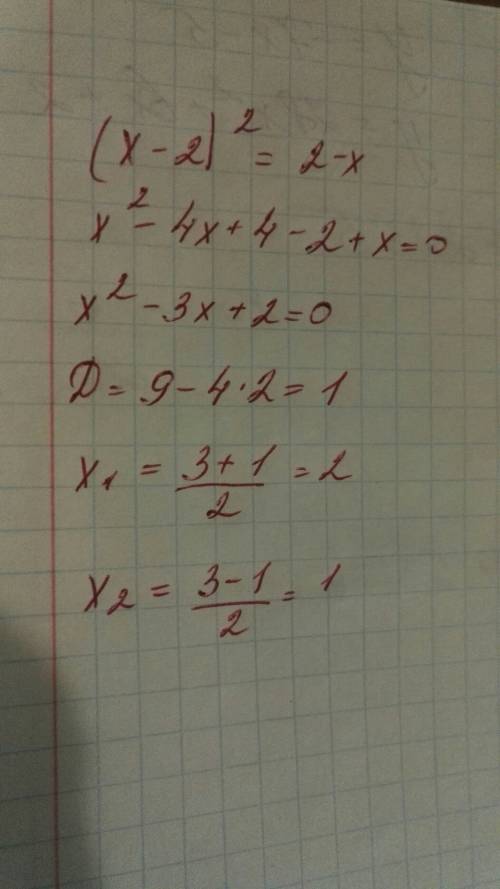 (x-2)² = 2-x
x² - 4x + 4 - 2 + x = 0
x² - 3x + 2 = 0
D = 9 - 4·2 = 1
x₁ = (3+1)/2 = 2
x₂ = (3-1)/2 = 1